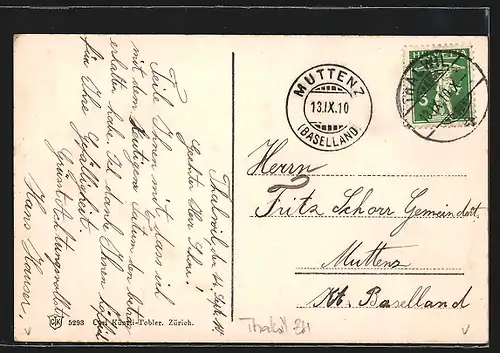 Thalwil, den 14. Sept. 10
Geehrter Herr Schorr!
Teile Ihnen mit, dass ich
mit dem heutigen Datum den
erhalten habe. Ich danke Ihnen höflich
für Ihre Gefälligkeit.
Grüsst achtungsvollst
Hans Hauser,
5293 Carl Künzli-Tobler. Zürich.
MUTTENZ
13.IX.10
(BASELLAND)
HELVETIA
5
Herrn
Fritz Schorr Gemeinderat.
Muttenz
Kt. Baselland
Thalwil ZH